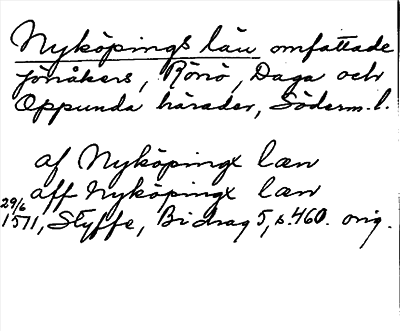 Nyköpings län omfattade
Jönåkers, Rönö, Daga och
Oppunda härader, Söderm. l.
af Nyköpingx læn
aff Nyköpingx læn
29/6
1571, Styffe, Bidrag 5, s. 460. orig.